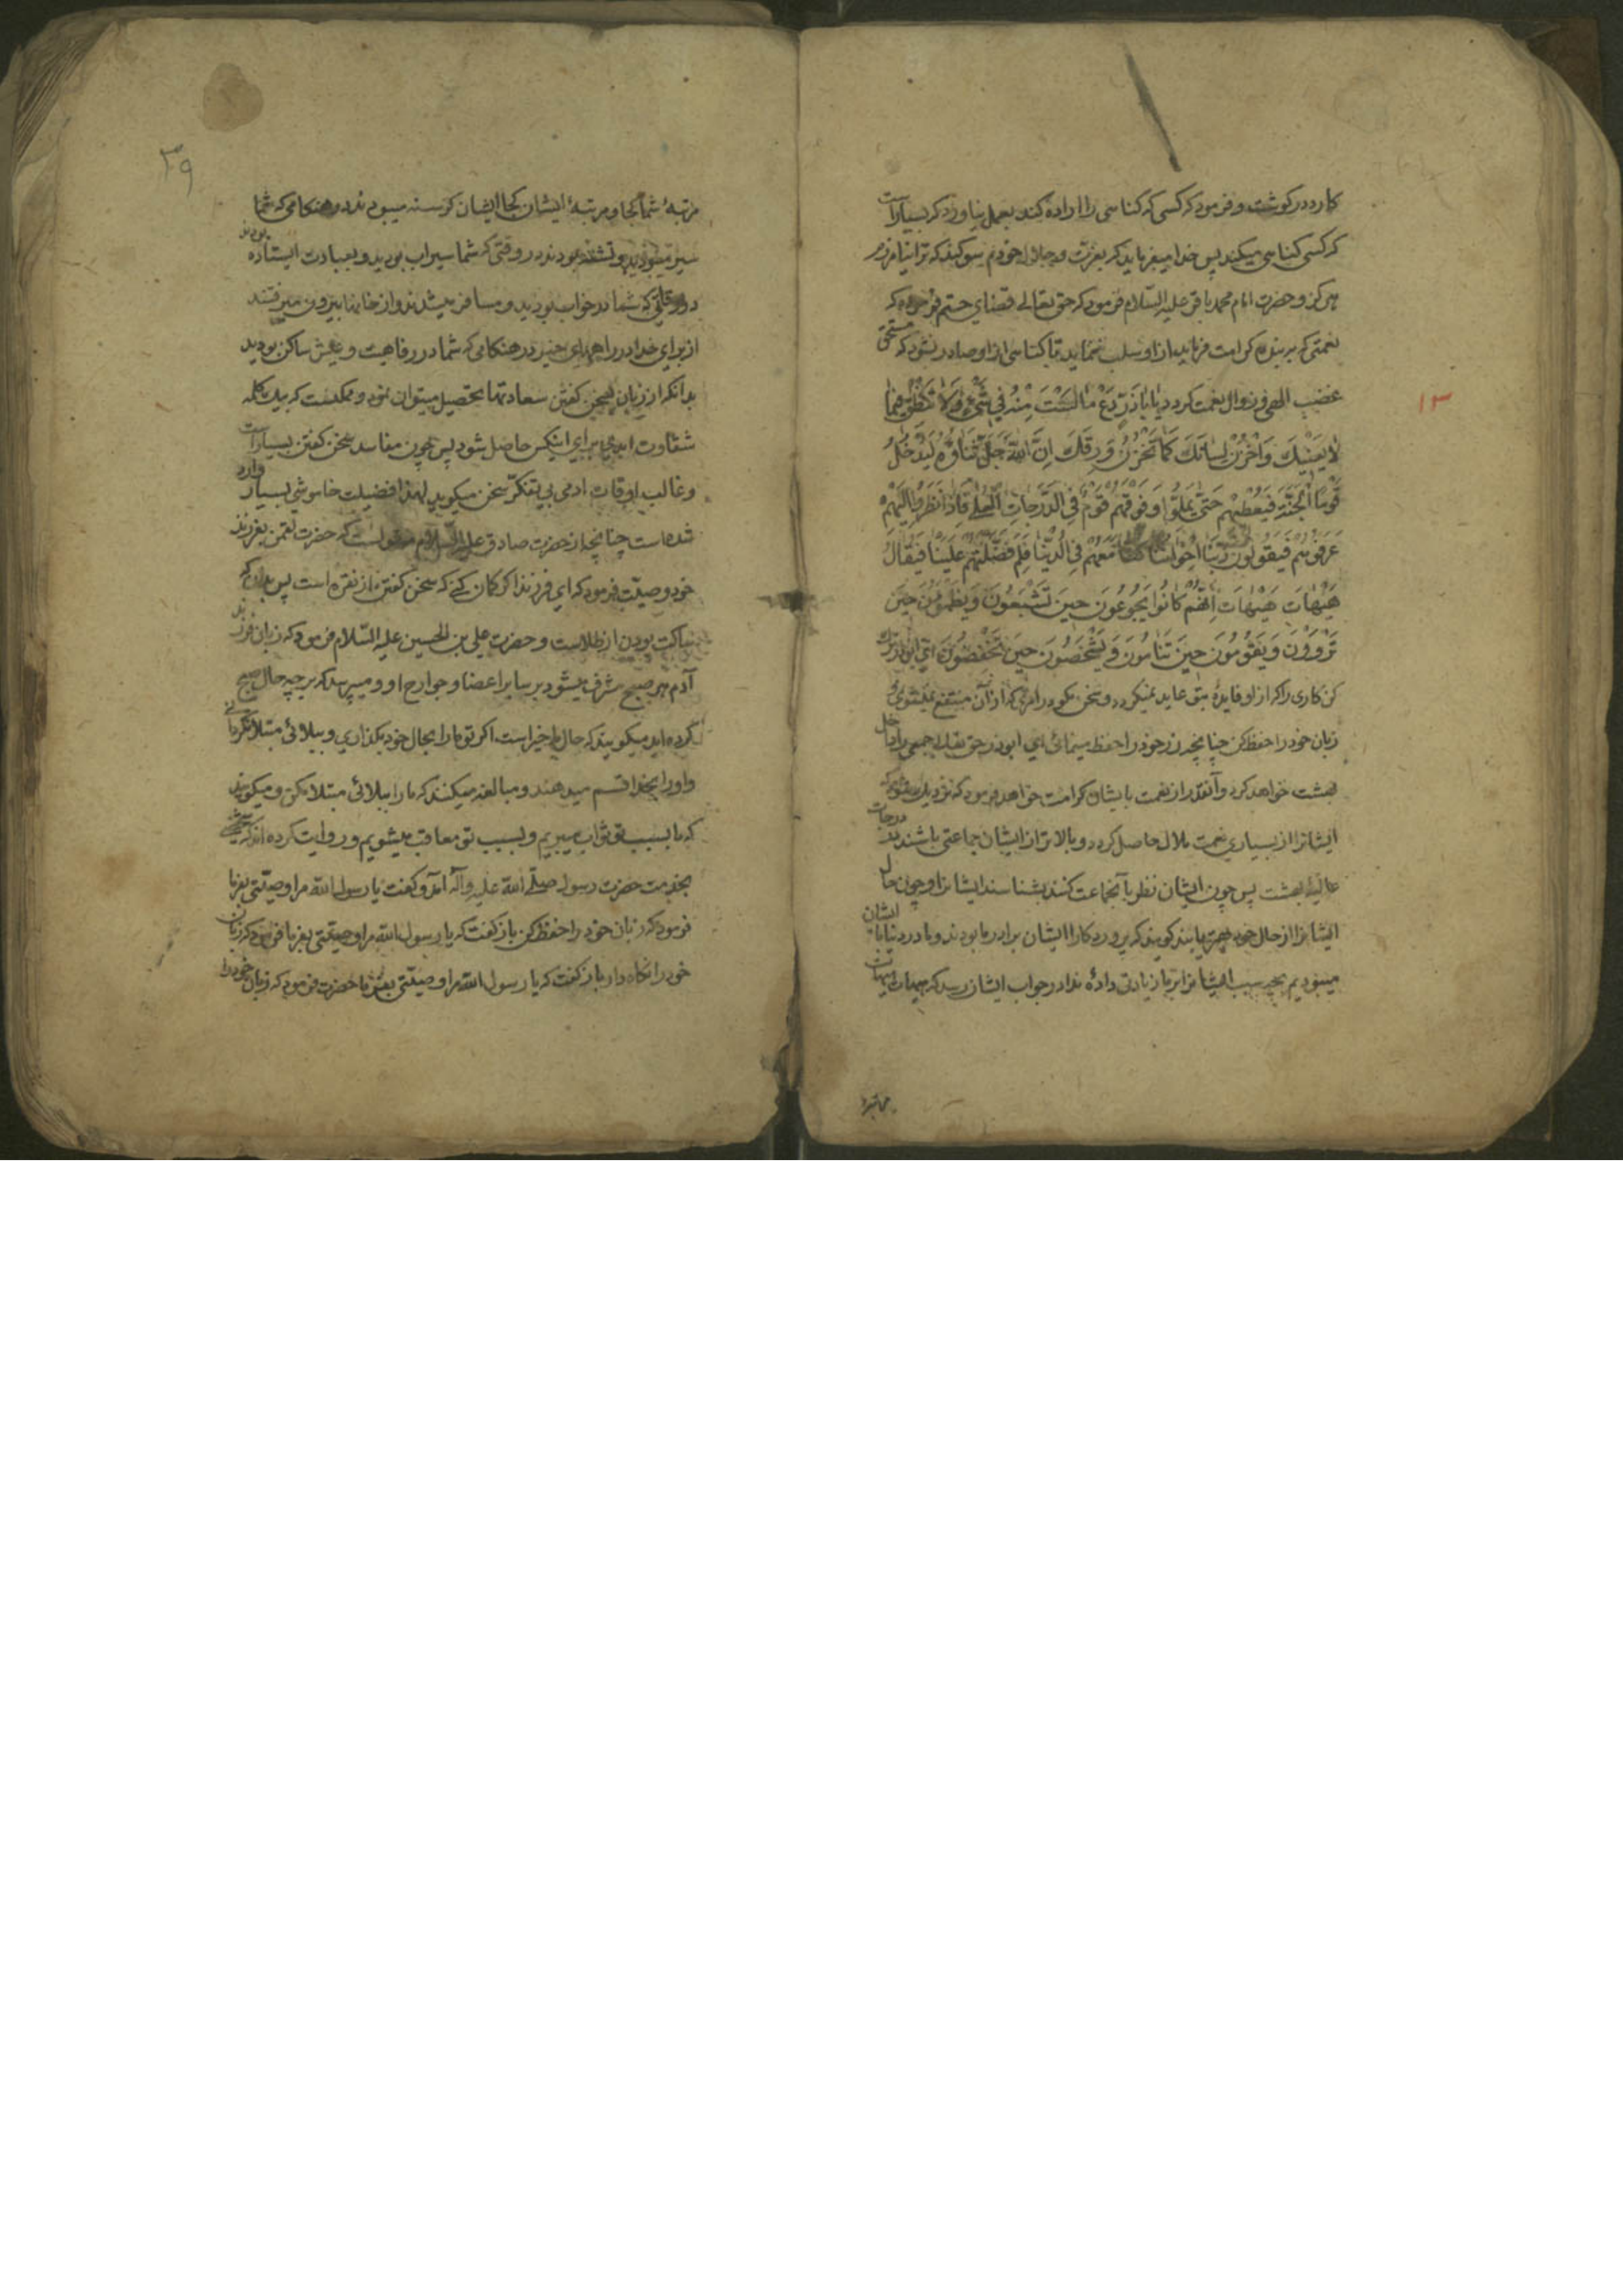 کارد در کوشت و فرمود که کسی که کناهی را اراده کند بعمل نیاورد که بسیار است
که کسی کناهی میکند پس خدا میفرماید که بعزت و جلال خودم سوکند که ترا نیامرزم
هرکز و حضرت امام محمد باقر علیه السلام فرمود که حق تعالی قضای حتم فرموده که
نعمتی که بر بنده کرامت فرماید از او سلب ننماید تا کناهی از او صادر نشود که مستحق
غضب الهی و زوال نعمت کردد یا اباذر دع ما لست منه فی شیء ولا تنطق فیما
لا یعنیک و اخزن لسانک کما تخزن ورقک ان الله جل ثناؤه لیدخل
قوما الجنة فیعطیهم حتی یملوا و فوقهم قوم فی الدرجات العلی فاذا نظروا الیهم
عرفوهم فیقولون ربنا اخواننا کنا معهم فی الدنیا فلم فضلتهم علینا فیقال
هیهات هیهات انهم کانوا یجوعون حین تشبعون و یظمؤن حین
تروون و یقومون حین تنامون و یشخصون حین تخفضون ای ابوذر ترک
کن کاری را که از او فایده بتو عاید نمیکردد و سخن مکو در امری که از آن منتفع نمیشوی و
زبان خود را حفظ کن چنانچه زر خود را حفظ مینمائی ای ابوذر حق تعالی جمعی را داخل
بهشت خواهد کرد و آنقدر از نعمت بایشان کرامت خواهد فرمود که نزدیک شود که
ایشانرا از بسیاری نعمت ملال حاصل کردد و بالاتر از ایشان جماعتی باشند در درجات
عالیهٔ بهشت پس چون ایشان نظر بآنجماعت کنند بشناسند ایشانرا و چون حال
ایشانرا از حال خود بهتر یابند کویند که پروردکارا ایشان برادر ما بودند و ما در دنیا با ایشان
میبودیم بچه سبب ایشانرا بر ما زیادتی دادهٔ ندا در جواب ایشان رسد که هیهات هیهات
مرتبهٔ
۱۳
۳۹
مرتبهٔ شما کجا و مرتبهٔ ایشان کجا ایشان کرسنه میبودند در هنکامی که شما
سیر میبودید و تشنه بودند در وقتی که شما سیراب بودید و بعبادت ایستاده بودند
در وقتی که شما در خواب بودید و مسافر میشدند و از خانها بیرون میرفتند
از برای خدا در راههای خیر در هنکامی که شما در رفاهیت و عیش ساکن بودید
بدانکه از زبان سخن کفتن سعادتها تحصیل میتوان نمود و ممکنست که بیک کلمه
شقاوت ابدی برای اینکس حاصل شود پس چون مفاسد سخن کفتن بسیار است
و غالب اوقات ادمی بی تفکر سخن میکوید لهذا فضیلت خاموشی بسیار وارد
شده است چنانچه از حضرت صادق علیه السلام منقولست که حضرت لقمن بفرزند
خود وصیت فرمود که ای فرزند اکر کمان کنی که سخن کفتن از نقره است پس بدان که
ساکت بودن از طلاست و حضرت علی بن الحسین علیه السلام فرمود که زبان فرزند
آدم هر صبح مشرف میشود بر سایر اعضا و جوارح او و میپرسد که بر چه حال صبح
کرده اید میکویند که حال ما خیر است اکر تو ما را بحال خود بکذاری و ببلائی مبتلا نکردانی
و او را بخدا قسم میدهند و مبالغه میکنند که ما را ببلائی مبتلا مکن و میکویند
که ما بسبب تو ثواب میبریم و بسبب تو معاقب میشویم و روایت کرده اند که شخصی
بخدمت حضرت رسول صلی الله علیه و آله آمد و کفت یا رسول الله مرا وصیتی بفرما
فرمود که زبان خود را حفظ کن باز کفت که یا رسول الله مرا وصیتی بفرما فرمود که زبان
خود را نکاه دار باز کفت که یا رسول الله مرا وصیتی بفرما حضرت فرمود که زبان خود را